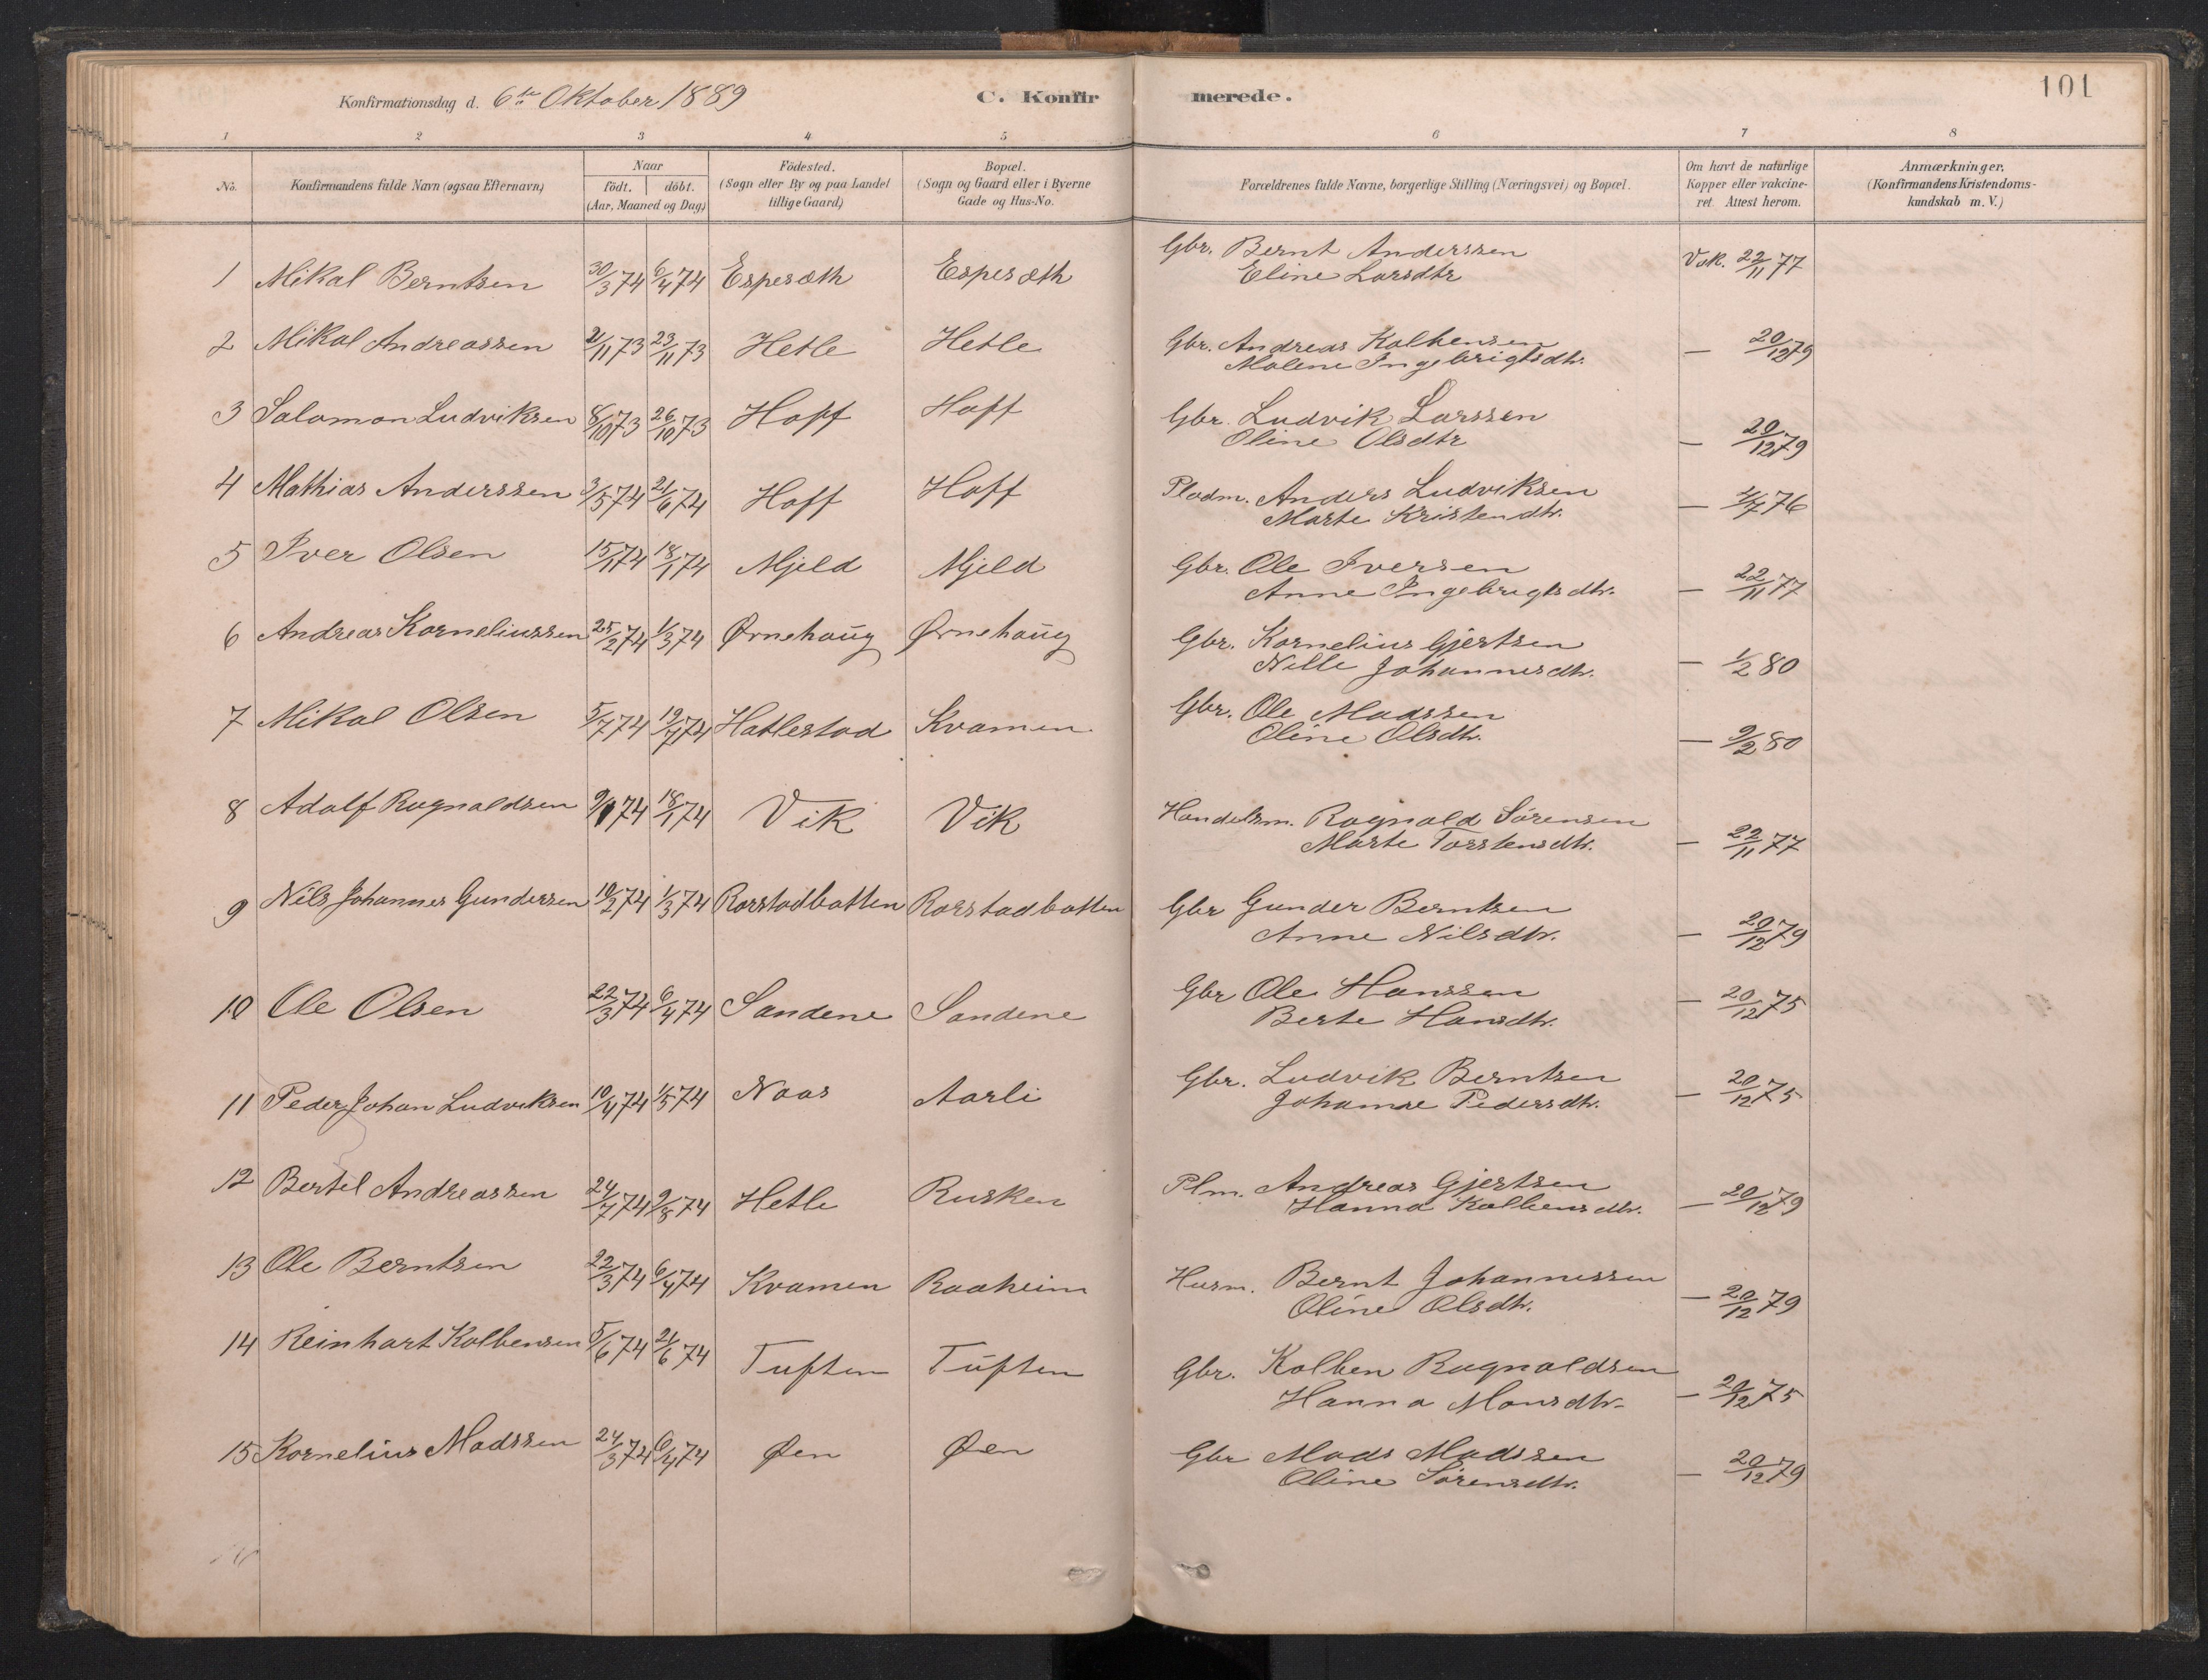 Konfirmationsdag d. 6te Oktober 1889 C. Konfirmerede. 101
1 2 3 4 5 6 7 8
No. Konfirmandens fulde Navn (ogsaa Efternavn) Naar födt. döbt. (Aar, Maaned og Dag) Födested. (Sogn eller By og paa Landet tillige Gaard) Bopæl. (Sogn og Gaard eller i Byerne Gade og Hus-No. Forældrenes fulde Navne, borgerlige Stilling (Næringsvei) og Bopæl. Om havt de naturlige Kopper eller vakcineret. Attest herom. Anmærkninger. (Konfirmandens Kristendomskundskab m. V.)
1 Mikal Berntsen 30/3 74 6/4 74 Espesæth Espesæth Gbr. Bernt Anderssen Vak. 22/11 77
Eline Larsdtr
2 Mikal Andreassen 2/11 73 23/11 73 Hetle Hetle Gbr. Andreas Kolbensen — 20/12 79
Malene Ingebrigtsdtr.
3 Salomon Ludviksen 8/10 73 26/10 73 Hoff Hoff Gbr. Ludvik Larssen — 20/12 79
Oline Olsdtr
4 Mathias Anderssen 3/5 74 21/6 74 Hoff Hoff Pladm. Anders Ludviksen — 4/7 76
Marte Kristendtr.
5 Iver Olsen 15/1 74 18/1 74 Mjeld Mjeld Gbr. Ole Iversen — 22/11 77
Anne Ingebrigtsdtr.
6 Andreas Korneliussen 25/2 74 1/3 74 Ørnehaug Ørnehaug Gbr. Kornelius Gjertsen — 1/2 80
Nille Johannesdtr.
7 Mikal Olsen 5/7 74 19/7 74 Hatlestad Kvamen Gbr. Ole Madssen — 9/2 80
Oline Olsdtr.
8 Adolf Ragnaldsen 9/1 74 18/1 74 Vik Vik Handelsm. Ragnald Sørensen — 22/11 77
Marte Torstensdtr.
9 Nils Johannes Gundersen 10/2 74 1/3 74 Rorstadbotten Rorstadbotten Gbr Gunder Berntsen — 20/12 79
Anne Nilsdtr.
10 Ole Olsen 22/3 74 6/4 74 Sandene Sandene Gbr Ole Hanssen — 20/12 75
Berte Hansdtr.
11 Peder Johan Ludviksen 10/4 74 1/5 74 Naas Aarli Gbr. Ludvik Berntsen — 20/12 75
Johanne Pedersdtr.
12 Bertel Andreassen 24/7 74 9/8 74 Hetle Rusken Plm. Andreas Gjertsen — 20/12 79
Hanna Kolbensdtr.
13 Ole Berntsen 22/3 74 6/4 74 Kvamen Raaheim Husm. Bernt Johannessen — 20/12 79
Oline Olsdtr.
14 Reinhart Kolbensen 5/6 74 21/6 74 Tuften Tuften Gbr. Kolben Ragnaldsen — 20/12 75
Hanna Monsdtr.
15 Kornelius Madssen 24/3 74 6/4 74 Øen Øen Gbr Mads Madssen — 20/12 79
Oline Sørensdtr.